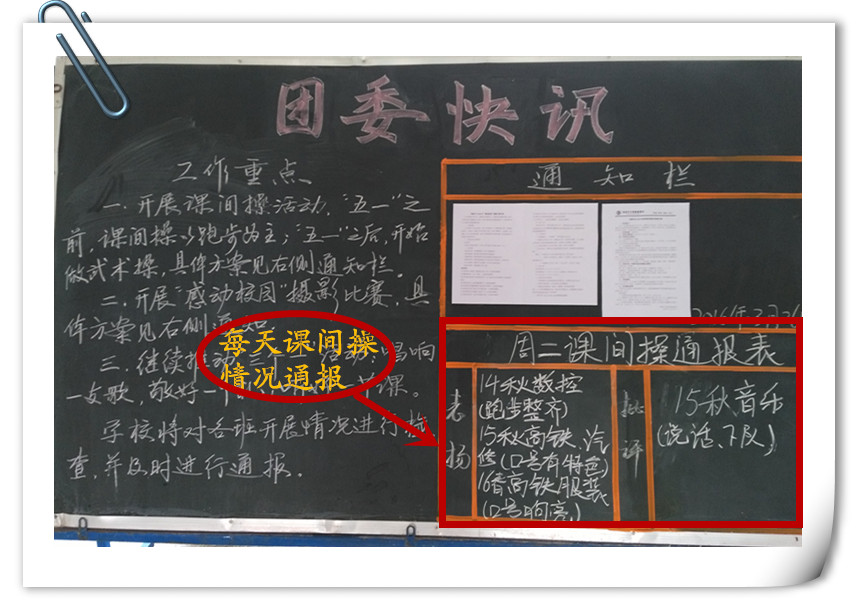 团委快讯
工作重点
一.开展课间操活动,"五一"之
前,课间操以跑步为主;"五一"之后,开始
做武术操,具体方案见右侧通知栏。
二.开展"感动校园"摄影比赛,具
体方案见右侧通知
三.继续推动 唱响
一支歌,敬好一 课。
学校将对各班开展情况进行检
查,并及时进行通报.
每天课间操
情况通报
通知栏
2016年3月26
周二课间操通报表
表扬
14秋数控
(跑步整齐)
15秋高铁、汽
修(口号有特色)
16春高铁服装
(口号响亮)
批评
15秋音乐
(说话、下队)